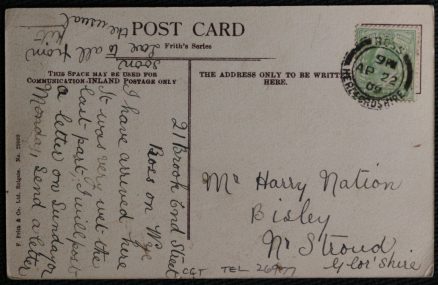 POST CARD
Frith's Series
THIS SPACE MAY BE USED FOR
COMMUNICATION-INLAND POSTAGE ONLY
THE ADDRESS ONLY TO BE WRITTEN
HERE.
ROSS
9 PM
AP 22
09
HEREFORDSHIRE
21 Brook End Street
Ross on Wye
I have arrived here
It was very wet the
last part, I will post
a letter on Sunday or
Monday, Send a letter
soon
love to all from
the usual
Mr Harry Nation
Bisley
Nr Stroud
Glos'shire
CGT TEL
F. Frith & Co. Ltd. Reigate. No.